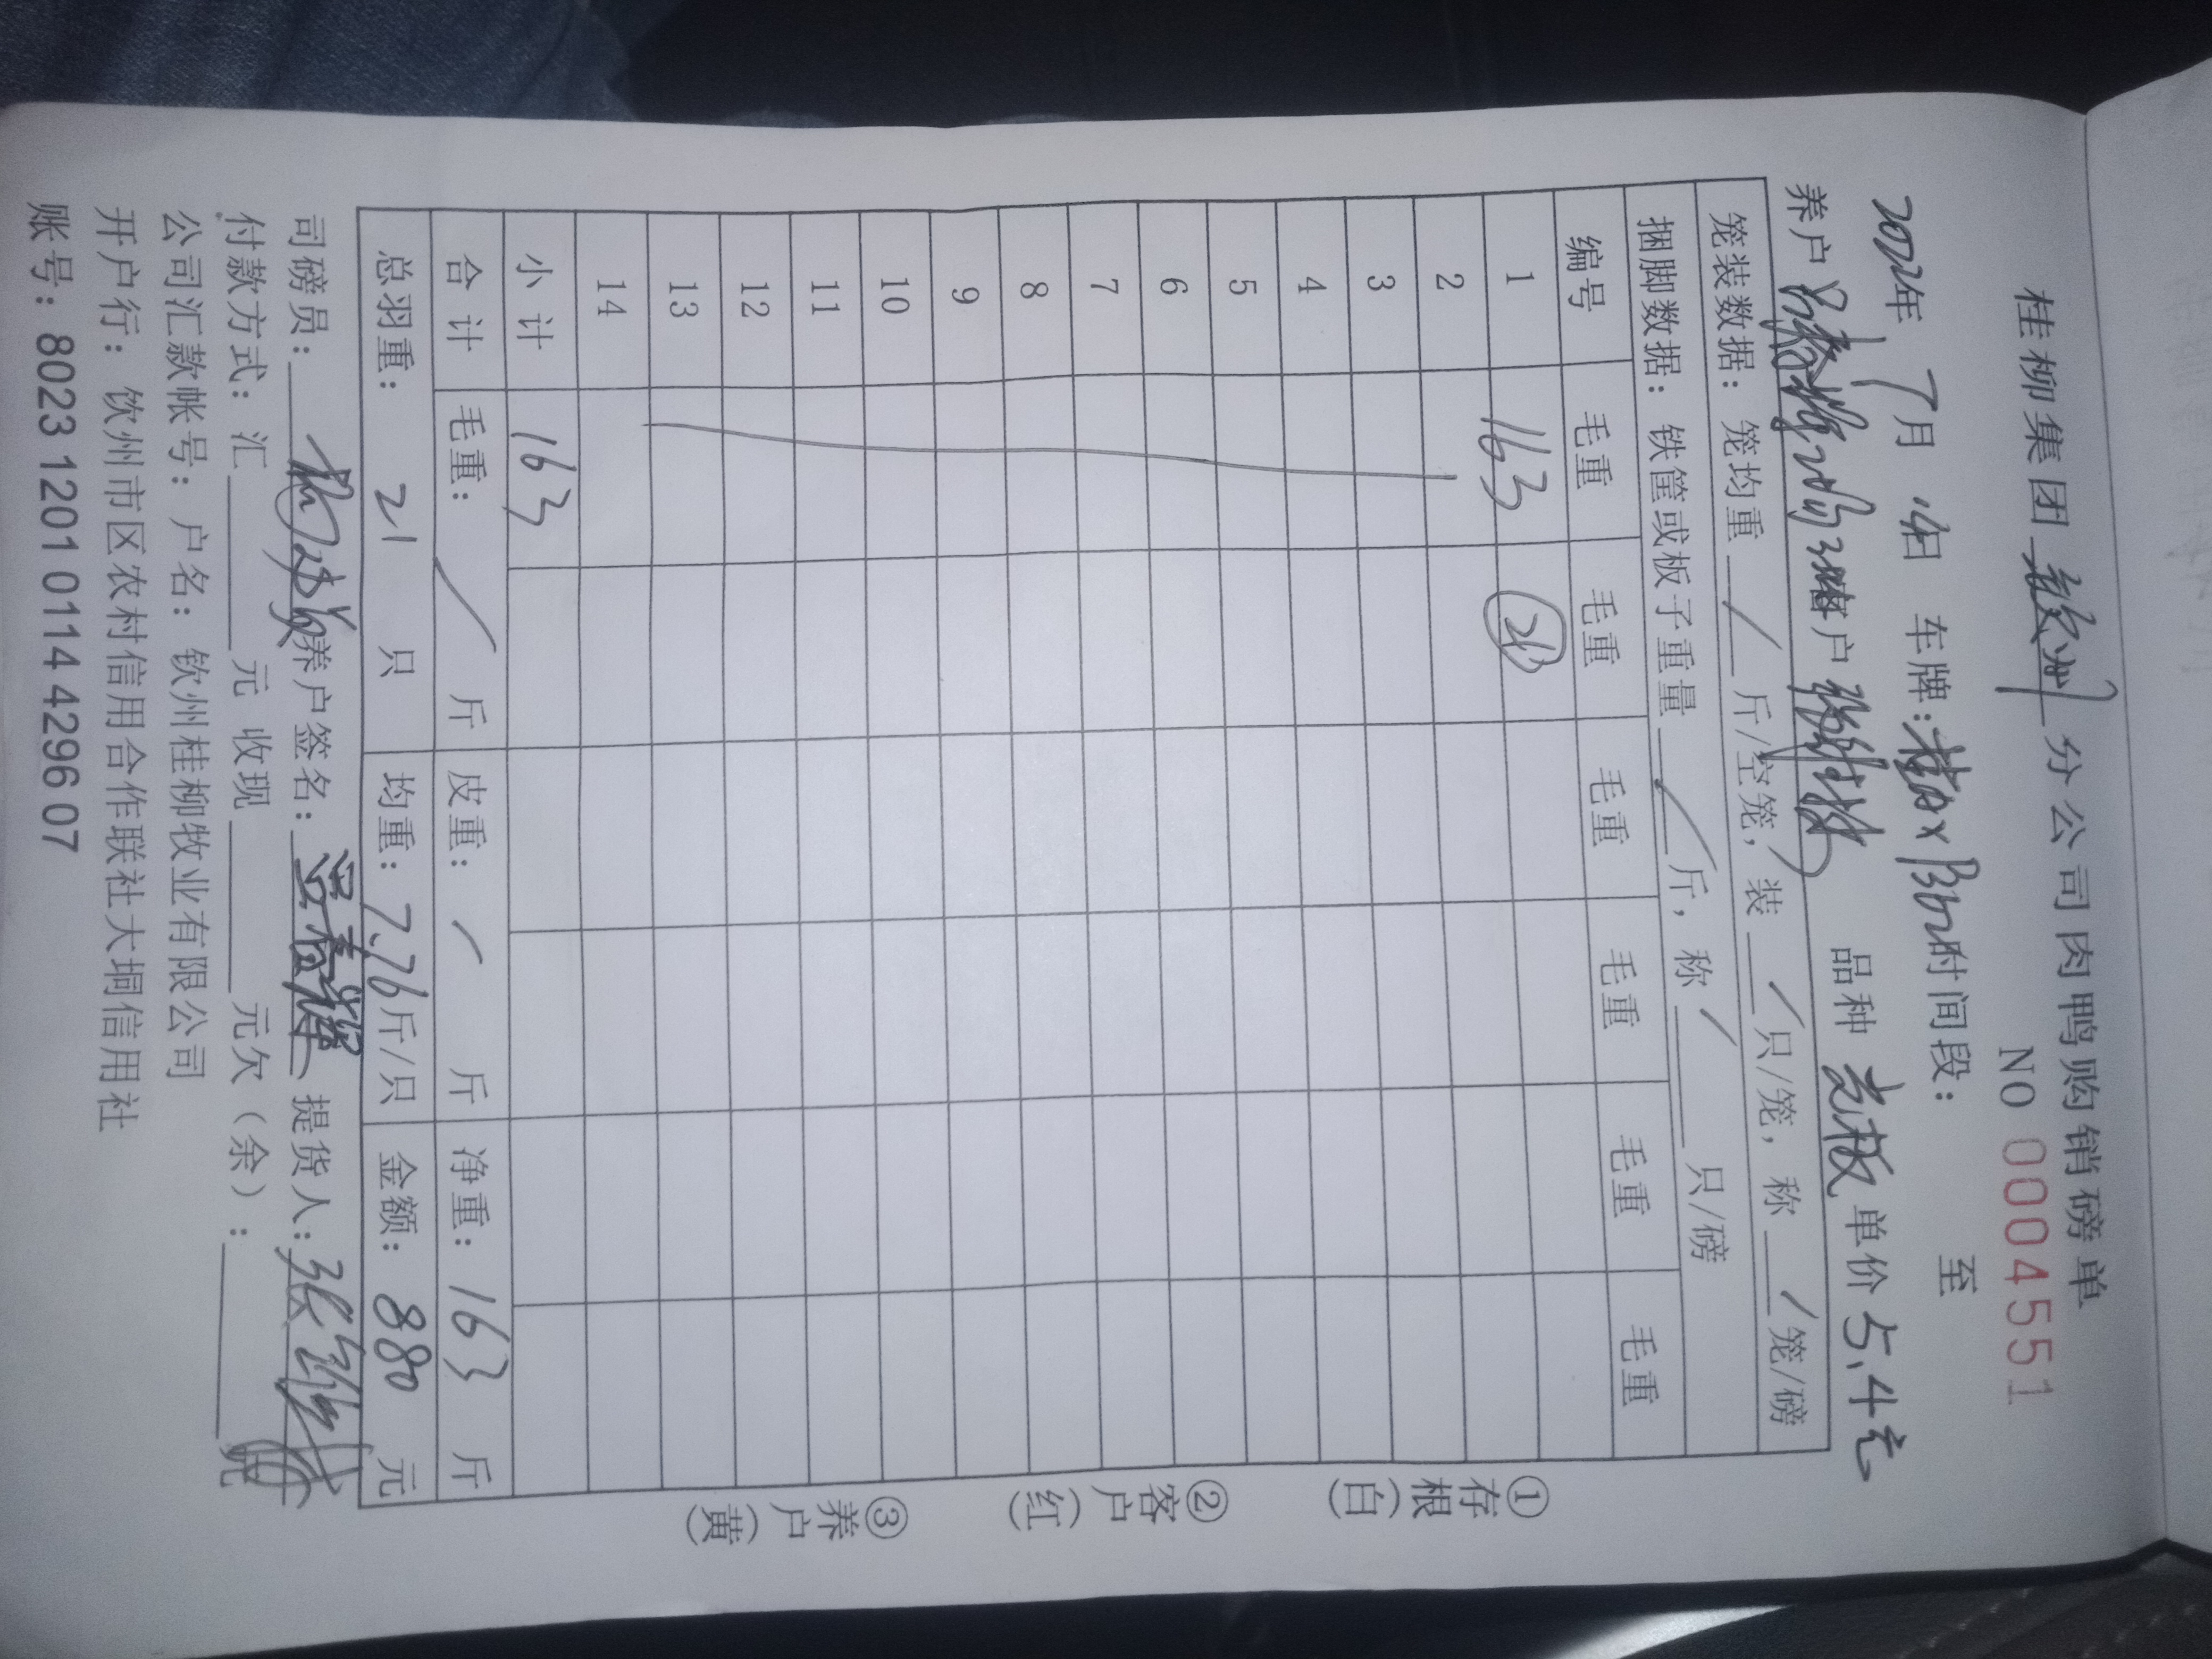 桂柳集团 钦州 分公司肉鸭购销磅单
NO 0004551
年 7月 日 车牌: 时间段: 至
养户 户 品种 单价 5.4元
笼装数据: 笼均重 / 斤/空笼, 装 / 只/笼, 称 / 笼/磅
捆脚数据: 铁筐或板子重量 / 斤, 称 / 只/磅
编号 毛重 毛重 毛重 毛重 毛重 毛重
1 163
2
3
4
5
6
7
8
9
10
11
12
13
14
小计 163
合计 毛重: / 斤 皮重: / 斤 净重: 163 斤
总羽重: 21 只 均重: 7.76斤/只 金额: 880 元
司磅员: 养户签名: 提货人: 张
付款方式: 汇 元 收现 元欠(余): 元
公司汇款帐号: 户名: 钦州桂柳牧业有限公司
开户行: 钦州市区农村信用合作联社大垌信用社
账号: 8023 1201 0114 4296 07
①存根(白) ②客户(红) ③养户(黄)